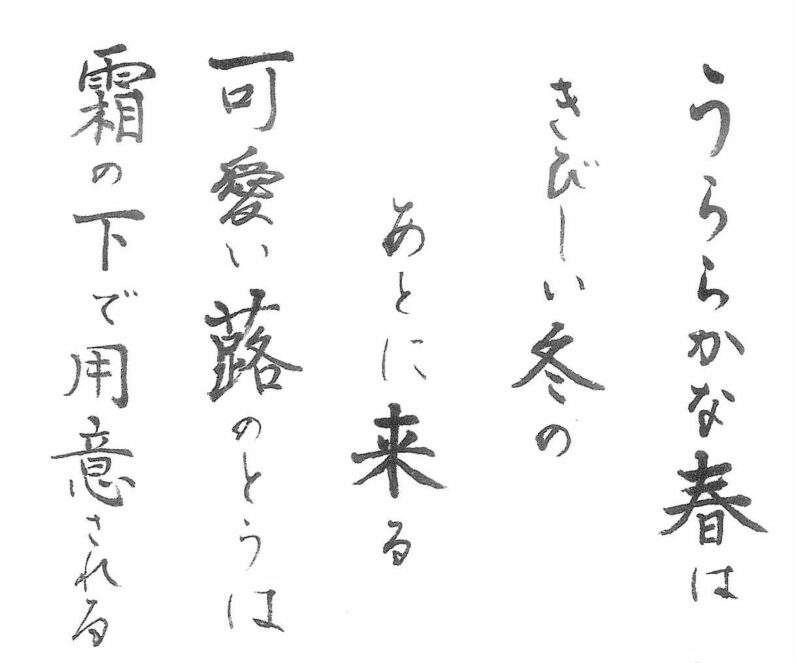 うららかな春は
きびしい冬の
あとに来る
可愛い蕗のとうは
霜の下で用意される